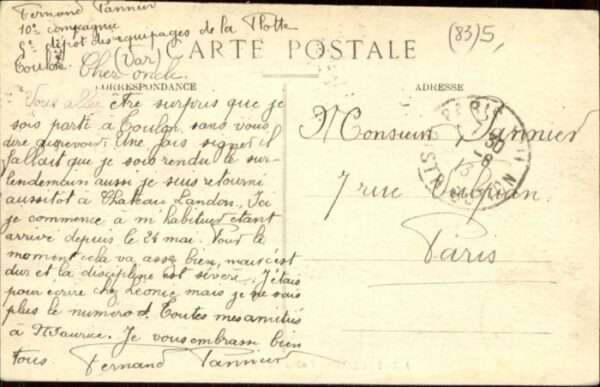 Fernand Tannier
10e compagnie
5e dépot des equipages de la Flotte
Toulon (Var)
(83)5,
CARTE POSTALE
CORRESPONDANCE
ADRESSE
Cher oncle.
Vous allez être surpris que je
sois parti à Toulon, sans vous
dire au revoir. Une fois signé il
fallait que je sois rendu le sur-
lendemain aussi je suis retourné
aussitôt à Chateau Landon. Ici
je commence à m'habituer étant
arrivé depuis le 26 mai. Pour le
moment cela va assez bien, mais c'est
dur et la discipline est sévère. J'étais
pour écrire chez Léonie mais je ne sais
plus le numero. Toutes mes amitiés
à St Maurice. Je vous embrasse bien
tous. Fernand Tannier
Monsieur Tannier
7 rue Vauquelin.
Paris
PARIS
30
6
DISTRIBUTION